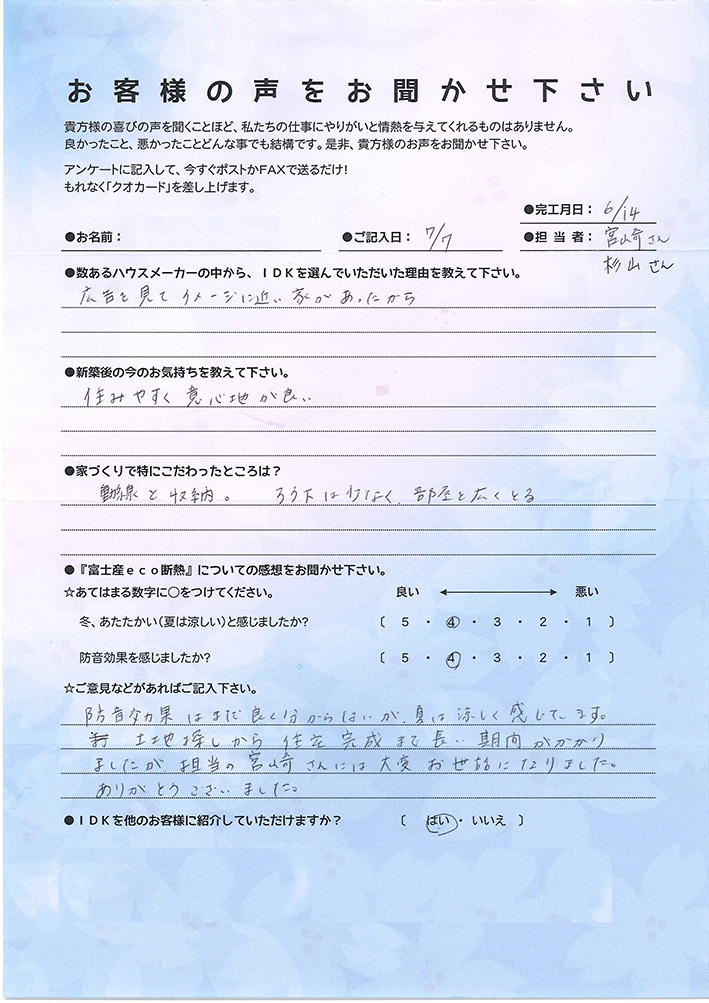 お客様の声をお聞かせ下さい
貴方様の喜びの声を聞くことほど、私たちの仕事にやりがいと情熱を与えてくれるものはありません。
良かったこと、悪かったことどんな事でも結構です。是非、貴方様のお声をお聞かせ下さい。
アンケートに記入して、今すぐポストかFAXで送るだけ!
もれなく「クオカード」を差し上げます。
●完工月日： 6/14
●お名前： ●ご記入日： 7/7 ●担当者： 宮崎さん
杉山さん
●数あるハウスメーカーの中から、IDKを選んでいただいた理由を教えて下さい。
広告を見てイメージに近い家があったから
●新築後の今のお気持ちを教えて下さい。
住みやすく意心地が良い
●家づくりで特にこだわったところは？
動線と収納。 ろう下は少なく、部屋を広くとる
●『富士産eco断熱』についての感想をお聞かせ下さい。
☆あてはまる数字に○をつけてください。 良い 悪い
冬、あたたかい（夏は涼しい）と感じましたか？ 〔 5 ・ 4 ・ 3 ・ 2 ・ 1 〕
防音効果を感じましたか？ 〔 5 ・ 4 ・ 3 ・ 2 ・ 1 〕
☆ご意見などがあればご記入下さい。
防音効果はまだ良く分からないが、夏は涼しく感じています。
土地探しから住宅完成まで長い期間がかかり
ましたが担当の宮崎さんには大変お世話になりました。
ありがとうございました。
●IDKを他のお客様に紹介していただけますか？ 〔 はい ・ いいえ 〕